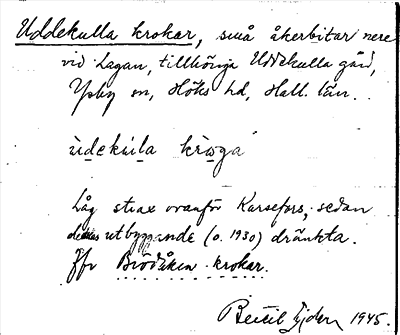 Uddekulla krokar, små åkerbitar nere
vid Lagan, tillhöriga Uddekulla gård,
Ysby sn, Höks hd, Hall. län.
ùdekúla krò̄ga
Låg strax ovanför Karsefors, sedan
dettas utbyggande (o. 1930) dränkta.
Jfr Brödåken krokar.
Bertil Ejder 1945.